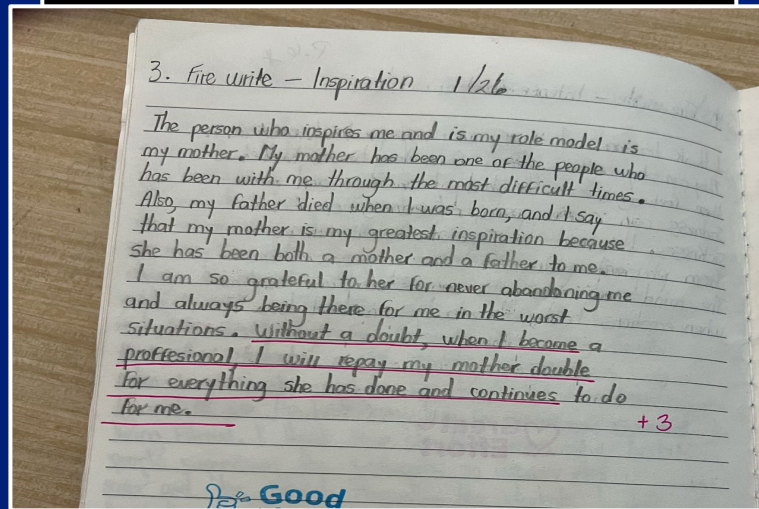 3. Fire write – Inspiration 1/26
The person who inspires me and is my role model is
my mother. My mother has been one of the people who
has been with me through the most difficult times.
Also, my father died when I was born, and I say
that my mother is my greatest inspiration because
she has been both a mother and a father to me.
I am so grateful to her for never abandoning me
and always being there for me in the worst
situations. Without a doubt, when I become a
proffesional, I will repay my mother double
for everything she has done and continues to do
for me.
+3
Good